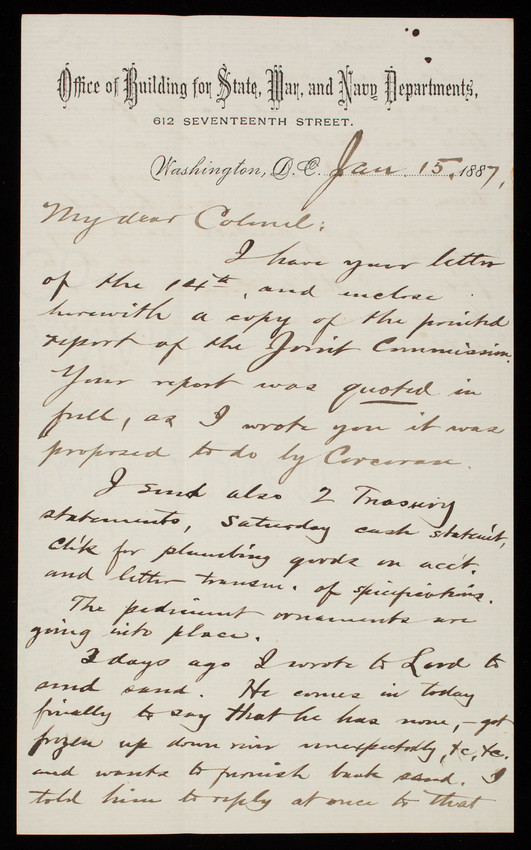 Office of Building for State, War, and Navy Departments,
612 SEVENTEENTH STREET.
Washington, D.C. Jan. 15, 1887,
My dear Colonel:
I have your letter
of the 14th, and enclose
herewith a copy of the printed
report of the Joint Commission.
Your report was quoted in
full, as I wrote you it was
proposed to do by Corcoran.
I send also 2 Treasury
statements, Saturday cash statem't,
ch'k for plumbing goods on acc't.
and letter transm. of specifications.
The pediment ornaments are
going into place.
3 days ago I wrote to Lord to
send sand. He comes in today
finally to say that he has none, – got
frozen up down river unexpectedly, &c, &c.
and wants to furnish bank sand. I
told him to reply at once to that